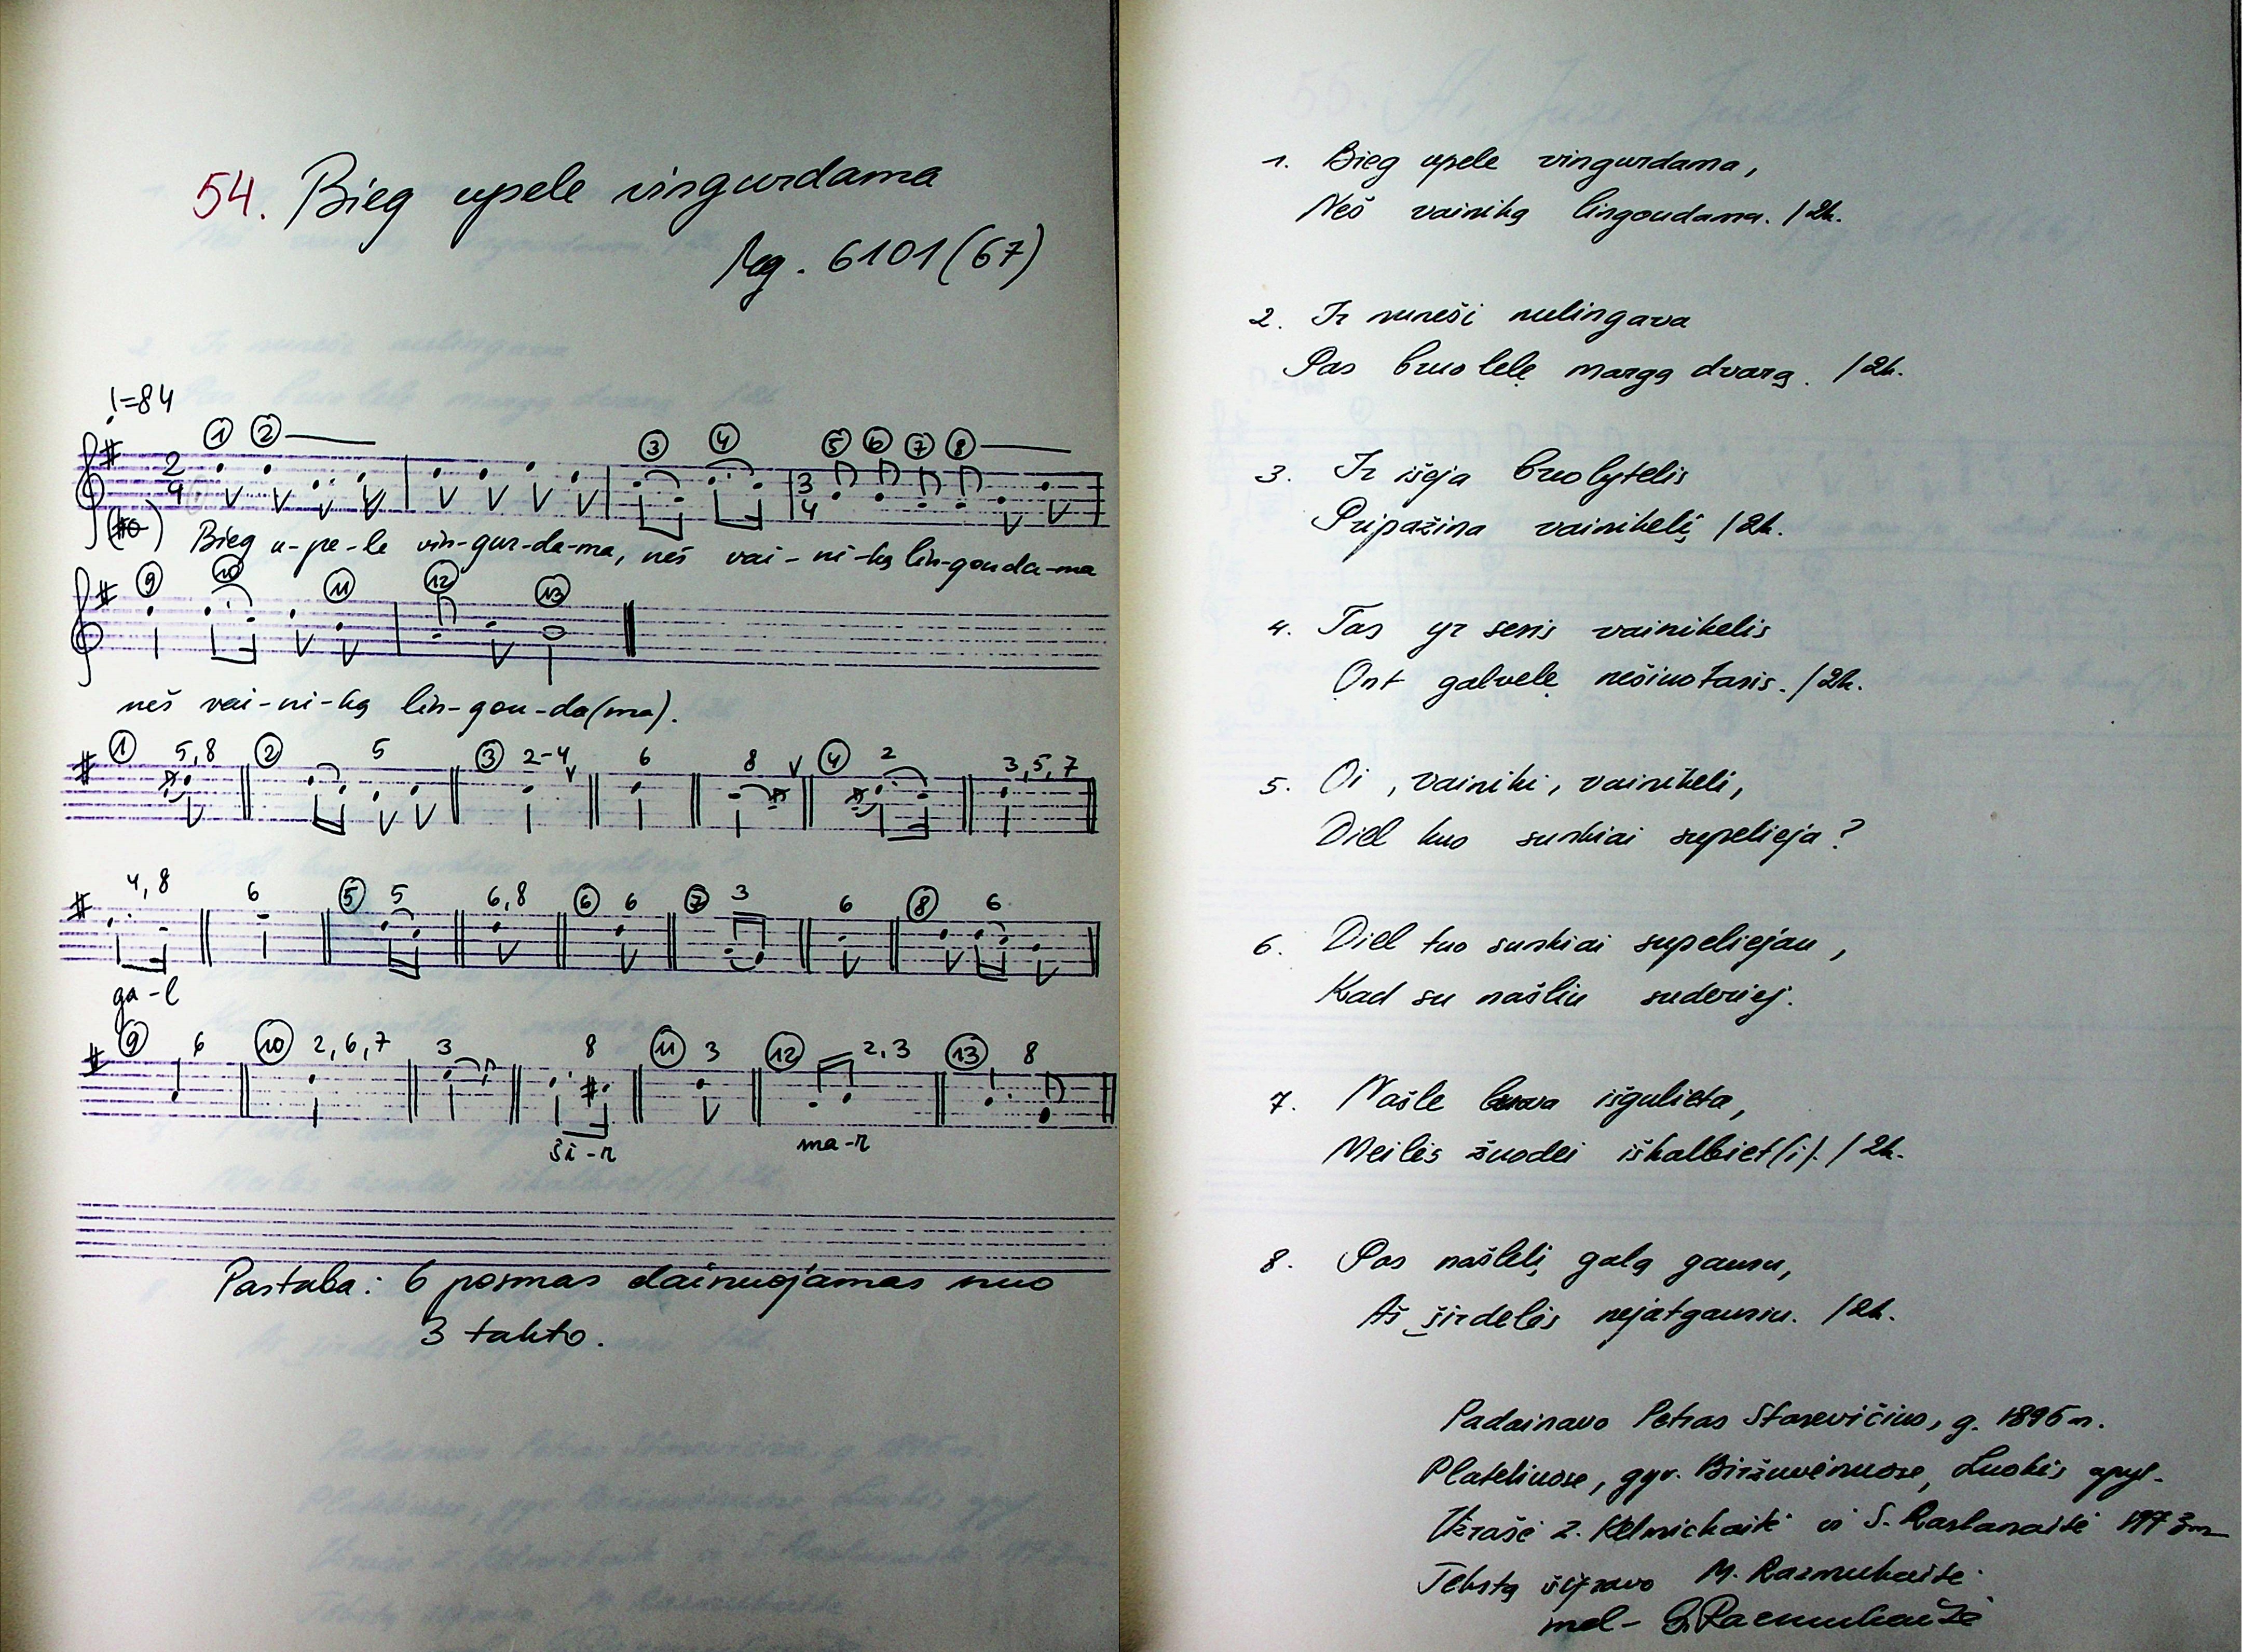 54. Bieg upele vingurdama
Mg. 6101(67)
♩=84
① ② ③ ④ ⑤ ⑥ ⑦ ⑧
2/4 3/4
Bieg u-pe-le vin-gur-da-ma, neš vai-ni-ką lin-gouda-ma
⑨ ⑩ ⑪ ⑫ ⑬
neš vai-ni-ką lin-gou-da(ma).
① 5,8 ② 5 ③ 2-4 6 8 ④ 2 3,5,7
4,8 6 ⑤ 5 6,8 ⑥ 6 ⑦ 3 6 ⑧ 6
ga-l
⑨ 6 ⑩ 2,6,7 3 8 ⑪ 3 ⑫ 2,3 ⑬ 8
ši-r ma-r
Pastaba: 6 posmas dainuojamas nuo
3 takto.
1. Bieg upele vingurdama,
Neš vainiką lingoudama. /2k.
2. Ir nuneši nulingava
Pas bruolelę margą dvarą. /2k.
3. Ir išeja bruolytelis
Pripažina vainikelį /2k.
4. Tas yr senis vainikelis
Ont galvelę nešinotasis. /2k.
5. Oi, vainiki, vainikeli,
Diel kuo sunkiai supelieja?
6. Diel tuo sunkiai supeliejau,
Kad su našliu suderiej.
7. Našle buva išgulieta,
Meilės žuodei iškalbiet(i). /2k.
8. Pas našlelį galą gausu,
Aš širdelės nejatgausiu. /2k.
Padainavo Petras Stasevičius, g. 1896 m.
Plateliuose, gyv. Biržuvėnuose, Luokės apyl.
Užrašė Z. Kelmickaitė ir S. 1973 m
Tekstą šifravo M. Razmukaitė
mel- Razmukaitė